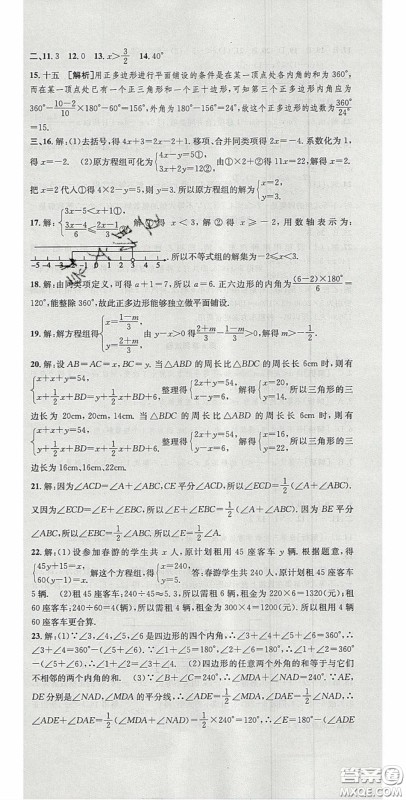 二、11. 3  12. 0  13. x>3/2  14. 40°
15. 十五 [解析]用正多边形进行平面铺设的条件是在某一顶点处各内角的和为360°,
而在某一顶点处已有一个正三角形和一个正十边形,可知另一个正多边形的内角为
360°-(10-2)/10×180°-60°=156°,外角为180°-156°=24°,故这个正多边形的边数为360°/24°
=15.
三、16. 解:(1)去括号,得4x+3=2x-2+1. 移项、合并同类项得2x=-4. 系数化为1,
得x=-2. (2)原方程组可化为{4x-y=5①, 3x+y=17②, 由①+②得11x=22,解得x=2.
把x=2代入①得4×2-y=5,则y=3. 所以原方程组的解为{x=2, y=3.
17. 解:{3x-5<x+1①, (3x-4)/6≤(2x-1)/3②, 解①得x<3,解②得x≥-2, 用数轴表示为:
-5 -4 -3 -2 -1 0 1 2 3 4 5 . 所以不等式组的解集为-2≤x<3.
18. 解:由同类项定义,可得a=6. 正六边形的内角为(6-2)×180°/6=
120°,能整除360°,故此正多边形能够独立做平面铺设.
19. 解:解方程组得{x=(1-m)/3, y=(2+m)/3. 由y-x>0得(2+m)/3-(1-m)/3>0,解得m>-1/2.
20. 解:设AB=AC=x,BC=y. 当△ABD的周长比△BDC的周长长6cm时,则有
{x+x+y=54, x+1/2x+BD=y+1/2x+BD+6, 整理得{2x+y=54, x-y=6. 解得{x=20, y=14. 所以三角形的三
边长为20cm,20cm,14cm. 当△BDC的周长比△ABD的周长长6cm时,则有
{x+x+y=54, y+1/2x+BD=x+1/2x+BD+6, 整理得{2x+y=54, y-x=6. 解得{x=16, y=22. 所以三角形的三
边长为16cm,16cm,22cm.
21. 解:因为∠ACD=∠A+∠ABC,CE平分∠ACD,所以∠ECD=1/2(∠A+∠ABC).
又因为∠ECD=∠E+∠EBC,所以∠E+∠EBC=1/2(∠A+∠ABC). 因为BE平分
∠ABC,所以∠EBC=1/2∠ABC,所以1/2∠ABC+∠E=1/2(∠A+∠ABC),所以∠E=1/2∠A.
22. 解:(1)设参加春游的学生共x人,原计划租用45座客车y辆. 根据题意,得
{45y+15=x, 60(y-1)=x. 解这个方程组,得{x=240, y=5. 答:春游学生共240人,原计划租45座客车
5辆. (2)租45座客车:240÷45≈5.3,所以需租6辆,租金为220×6=1320(元);租
60座客车:240÷60=4(辆),所以需租4辆,租金为300×4=1200(元). 所以租用4辆
60座客车更合算.
23. 解:(1)∵∠3,∠4,∠5,∠6是四边形的四个内角,∴∠3+∠4+∠5+∠6=360°,
∴∠3+∠4=360°-(∠5+∠6). ∵∠1+∠5=180°,∠2+∠6=180°,∴∠1+∠2=360°-(∠5
+∠6),∴∠1+∠2=∠3+∠4. (2)四边形的任意两个外角的和等于与它们
不相邻的两个内角的和. (3)∵∠B+∠C=240°,∴∠MDA+∠NAD=240°. ∵AE,
DE是∠NAD,∠MDA的平分线,∴∠ADE=1/2∠MDA,∠DAE=1/2∠NAD,
∴∠ADE+∠DAE=1/2(∠MDA+∠NAD)=1/2×240°=120°,∴∠E=180°-(∠ADE